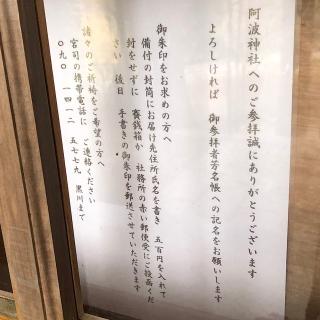 阿波神社へのご参拝誠にありがとうございます
よろしければ 御参拝者芳名帳への記名をお願いします
御朱印をお求めの方へ
備付の封筒にお届け先住所氏名を書き 五百円を入れて
封をせずに 賽銭箱か 社務所の赤い郵便受にご投函くだ
さい 後日 手書きの御朱印を郵送させていただきます
諸々のご祈祷をご希望の方へ
宮司の携帯電話に ご連絡ください
〇九〇 一四一二 五七七九 黒川まで